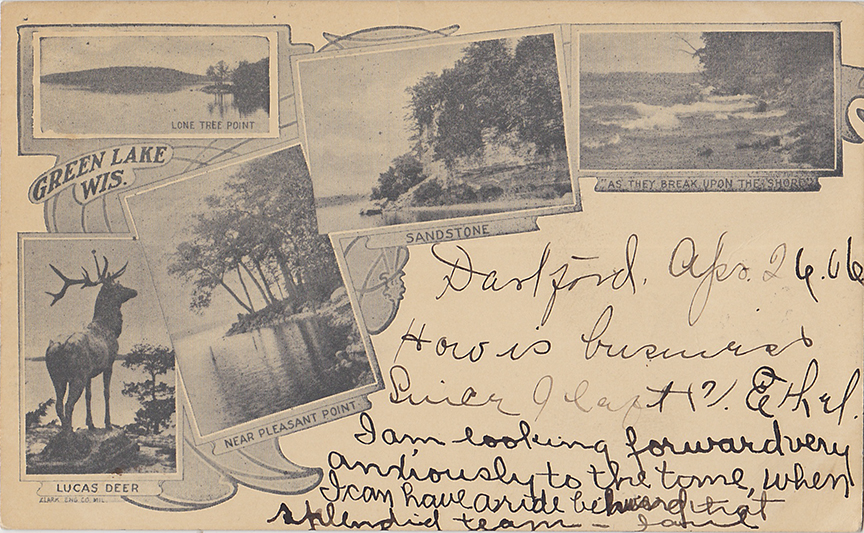 LONE TREE POINT
GREEN LAKE
WIS.
SANDSTONE
"AS THEY BREAK UPON THE SHORE"
NEAR PLEASANT POINT
LUCAS DEER
CLARK ENG CO. MIL.
Dartford, Apr. 26.06
How is business
Since I left H?. Ethel.
I am looking forward very
anxiously to the time, when
I can have a ride behind that
splendid team –